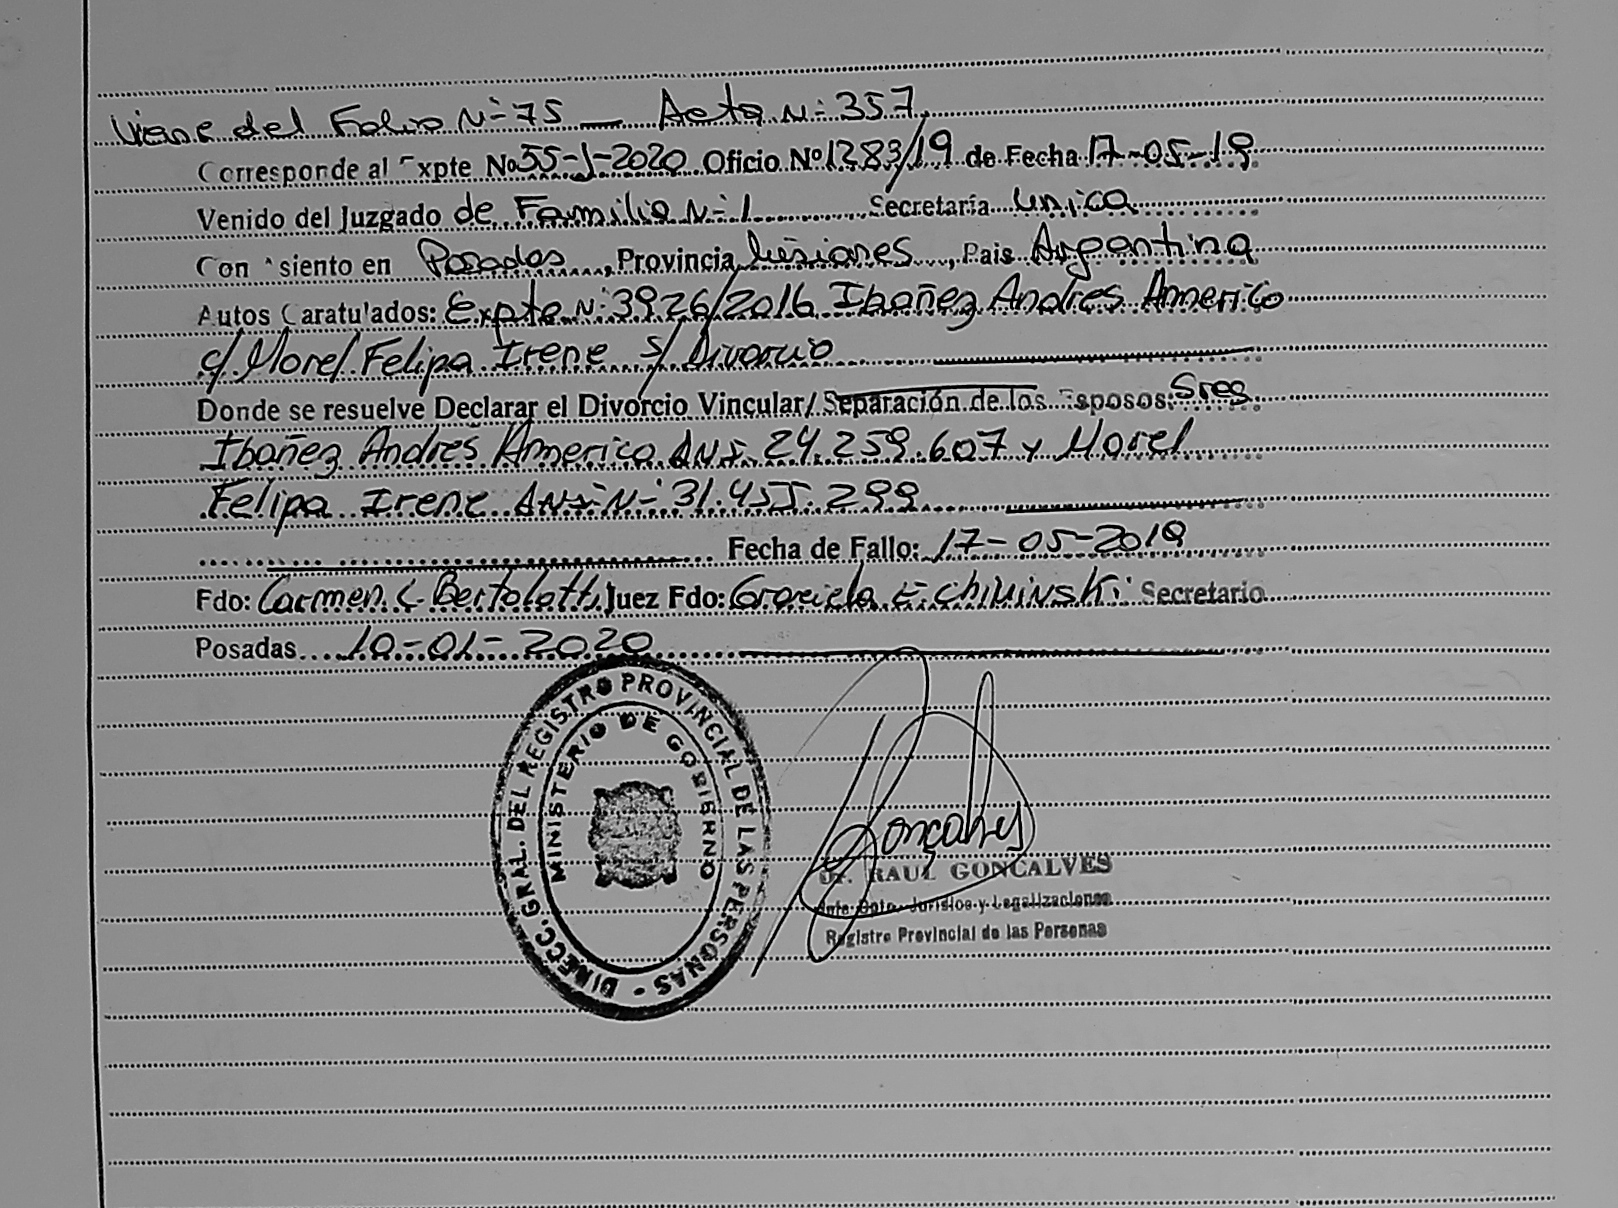 Viene del Folio N° 75 — Acta N° 357
Corresponde al Expte No 55-J-2020 Oficio Nº 1283/19 de Fecha 17-05-19
Venido del Juzgado de Familia N° 1 Secretaría Unica
Con siento en Posadas, Provincia Misiones, Pais Argentina
Autos Caratulados: Expte N° 3926/2016 Ibañez Andres Amerrico
c/ Morel Felipa Irene s/ Divorcio
Donde se resuelve Declarar el Divorcio Vincular/ Separación de los Esposos: Sres
Ibañez Andres Amerrico DNI. 24.259.607 y Morel
Felipa Irene DNI N° 31.455.299
Fecha de Fallo: 17-05-2019
Fdo: Carmen C. Bertolotti Juez Fdo: Graciela E. Secretario
Posadas 10-01-2020
DIRECC. GRAL. DEL REGISTRO PROVINCIAL DE LAS PERSONAS -
MINISTERIO DE GOBIERNO
Gonçalves
Dr. RAUL GONCALVES
Dpto. Jurídico y Legalizaciones
Registro Provincial de las Personas